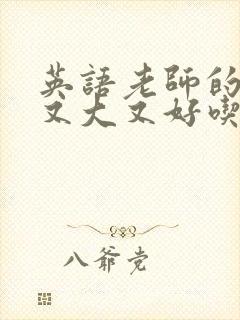 英語老師的
又大又好喫
八爺党